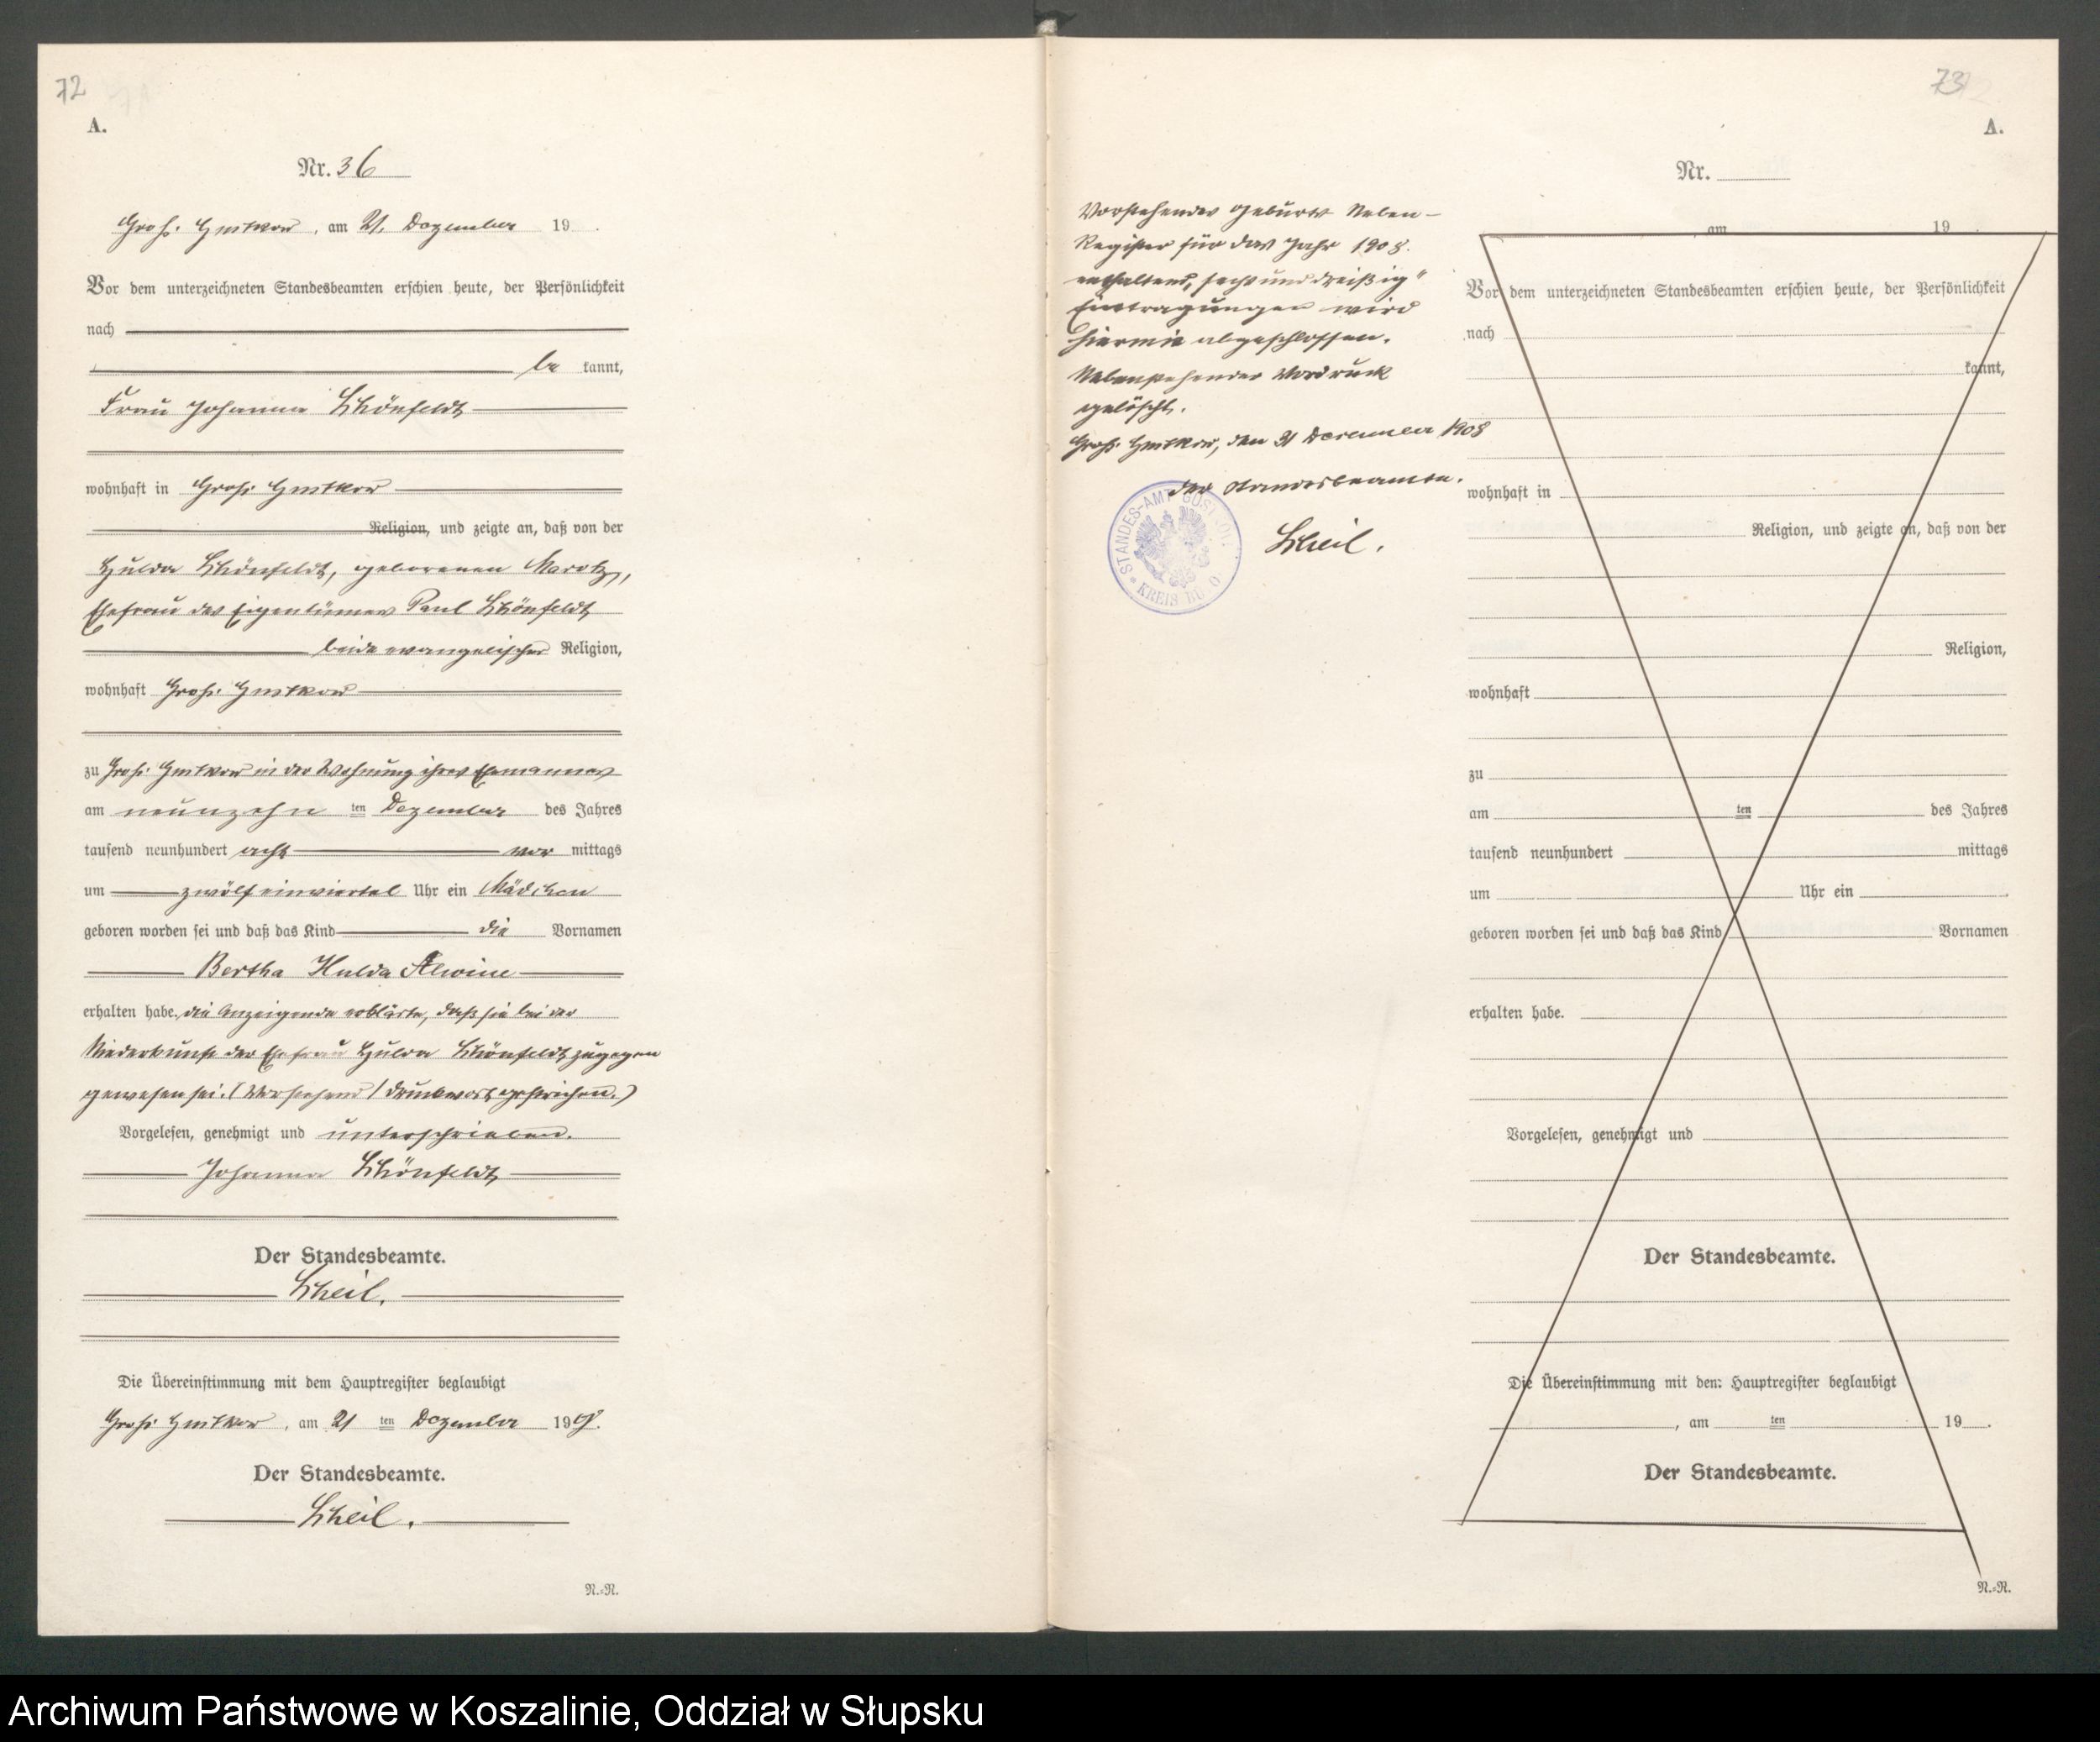 72
A.
Nr. 36
Groß Gustkow, am 21. Dezember 19
Vor dem unterzeichneten Standesbeamten erschien heute, der Persönlichkeit
nach
be kannt,
Frau Johanna Schönfeldt
wohnhaft in Groß Gustkow
Religion, und zeigte an, daß von der
Hulda Schönfeldt, geborenen Marotz,
Ehefrau des Eigentümers Paul Schönfeldt
beide evangelischer Religion,
wohnhaft Groß Gustkow
zu Groß Gustkow in der Wohnung ihres Ehemannes
am neunzehn ten Dezember des Jahres
tausend neunhundert acht vor mittags
um zwölf einviertel Uhr ein Mädchen
geboren worden sei und daß das Kind die Vornamen
Bertha Hulda Alwine
erhalten habe. die Anzeigende erklärte, daß sie bei der
Niederkunft der Ehefrau Hulda Schönfeldt zugegen
gewesen sei. (Vorstehend 1 Druckwort gestrichen.)
Vorgelesen, genehmigt und unterschrieben.
Johanna Schönfeldt
Der Standesbeamte.
Scheil.
Die Übereinstimmung mit dem Hauptregister beglaubigt
Groß Gustkow, am 21 ten Dezember 1908.
Der Standesbeamte.
Scheil.
N.=R.
73
A.
Vorstehendes Geburts Neben-
Register für das Jahr 1908.
enthaltend, sechsunddreißig"
Eintragungen wird
hiermit abgeschlossen.
Nebenstehender Vordruck
gelöscht.
Groß Gustkow, den 31 Dezember 1908
Der Standesbeamte.
Scheil.
STANDES-AMT
KREIS
Nr.
am 19 .
Vor dem unterzeichneten Standesbeamten erschien heute, der Persönlichkeit
nach
kannt,
wohnhaft in
Religion, und zeigte an, daß von der
Religion,
wohnhaft
zu
am ten des Jahres
tausend neunhundert mittags
um Uhr ein
geboren worden sei und daß das Kind Vornamen
erhalten habe.
Vorgelesen, genehmigt und
Der Standesbeamte.
Die Übereinstimmung mit dem Hauptregister beglaubigt
, am ten 19 .
Der Standesbeamte.
N.=R.
Archiwum Państwowe w Koszalinie, Oddział w Słupsku